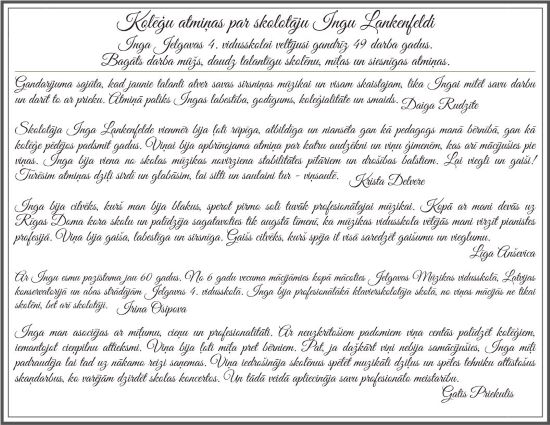 Kolēģu atmiņas par skolotāju Ingu Lankenfeldi
Inga Jelgavas 4. vidusskolai veltījusi gandrīz 49 darba gadus.
Bagāts darba mūžs, daudz talantīgu skolēnu, mīļas un siesnīgas atmiņas.
Gandarījuma sajūta, kad jaunie talanti atver savas sirsniņas mūzikai un visam skaistajam, lika Ingai mīlēt savu darbu
un darīt to ar prieku. Atmiņā paliks Ingas labestība, godīgums, koleģialitāte un smaids.
Daiga Rudzīte
Skolotāja Inga Lankenfelde vienmēr bija ļoti rūpīga, atbildīga un niansēta gan kā pedagogs manā bērnībā, gan kā
kolēģe pēdējos padsmit gadus. Viņai bija apbrīnojama atmiņa par katru audzēkni un viņu ģimenēm, kas arī mācījušies pie
viņas. Inga bija viena no skolas mūzikas novirziena stabilitātes pīlāriem un drošības balstiem. Lai viegli un gaiši!
Turēsim atmiņas dziļi sirdī un glabāsim, lai silti un saulaini tur - viņsaulē.
Krista Detvere
Inga bija cilvēks, kurš man bija blakus, sperot pirmo soli tuvāk profesionālajai mūzikai. Kopā ar mani devās uz
Rīgas Doma kora skolu un palīdzēja sagatavoties tik augstā līmenī, ka mūzikas vidusskola vēlējās mani virzīt pianistes
profesijā. Viņa bija gaiša, labestīga un sirsnīga. Gaišs cilvēks, kurš spēja it visā saredzēt gaišumu un vieglumu.
Līga Anševica
Ar Ingu esmu pazīstama jau 60 gadus. No 6 gadu vecuma mācījāmies kopā mācoties Jelgavas Mūzikas vidusskolā, Latvijas
konservatorijā un abas strādājām Jelgavas 4. vidusskolā. Inga bija profesionālākā klavierskolotāja skolā, no viņas mācījās ne tikai
skolēni, bet arī skolotāji.
Irina Osipova
Inga man asociējas ar mīļumu, cieņu un profesionalitāti. Ar neuzkrītošiem padomiem viņa centās palīdzēt kolēģiem,
iemantojot cieņpilnu attieksmi. Viņa bija ļoti mīļa pret bērniem. Pat, ja dažkārt viņi nebija samācījušies, Inga mīļi
padraudēja lai tad uz nākamo reizi saņemas. Viņa iedrošināja skolēnus spēlēt muzikāli dziļus un spēles tehniku attīstošus
skaņdarbus, ko varējām dzirdēt skolas koncertos. Un tādā veidā apliecināja savu profesionālo meistarību.
Gatis Priekulis